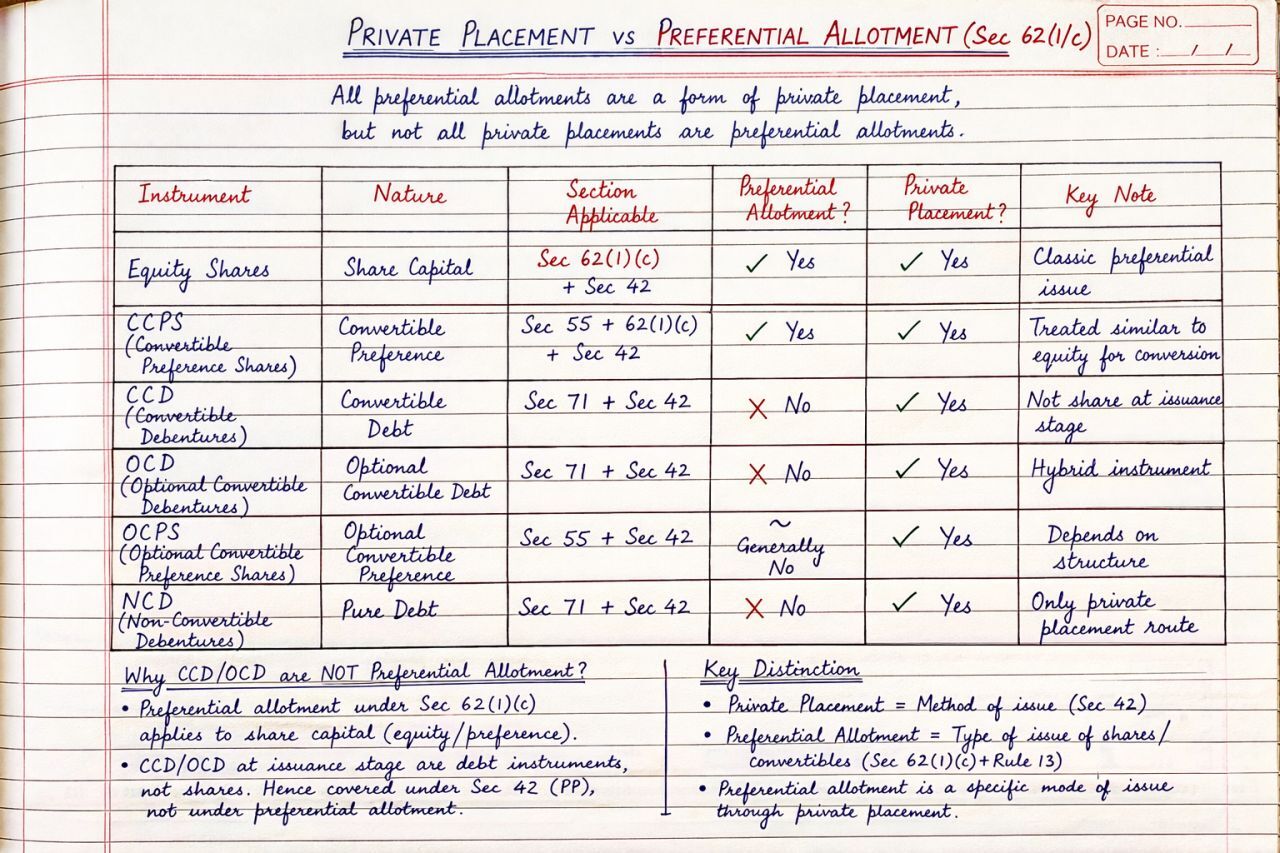 PRIVATE PLACEMENT vs PREFERENTIAL ALLOTMENT (Sec 62(1/c)
PAGE NO.
DATE : / /
All preferential allotments are a form of private placement,
but not all private placements are preferential allotments.
Instrument
Nature
Section
Applicable
Preferential
Allotment?
Private
Placement?
Key Note
Equity Shares
Share Capital
Sec 62(1)(c)
+ Sec 42
✓ Yes
✓ Yes
Classic preferential
issue
CCPS
(Convertible
Preference Shares)
Convertible
Preference
Sec 55 + 62(1)(c)
+ Sec 42
✓ Yes
✓ Yes
Treated similar to
equity for conversion
CCD
(Convertible
Debentures)
Convertible
Debt
Sec 71 + Sec 42
X No
✓ Yes
Not share at issuance
stage
OCD
(Optional Convertible
Debentures)
Optional
Convertible Debt
Sec 71 + Sec 42
X No
✓ Yes
Hybrid instrument
OCPS
(Optional Convertible
Preference Shares)
Optional
Convertible
Preference
Sec 55 + Sec 42
~
Generally
No
✓ Yes
Depends on
structure
NCD
(Non-Convertible
Debentures)
Pure Debt
Sec 71 + Sec 42
X No
✓ Yes
Only private
placement route
Why CCD/OCD are NOT Preferential Allotment?
• Preferential allotment under Sec 62(1)(c)
applies to share capital (equity/preference).
• CCD/OCD at issuance stage are debt instruments,
not shares. Hence covered under Sec 42 (PP),
not under preferential allotment.
Key Distinction
• Private Placement = Method of issue (Sec 42)
• Preferential Allotment = Type of issue of shares/
convertibles (Sec 62(1)(c)+Rule 13)
• Preferential allotment is a specific mode of issue
through private placement.